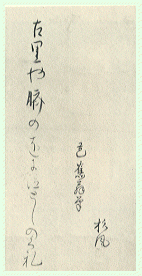 杉風
芭蕉
古里や臍のをに泣としのくれ